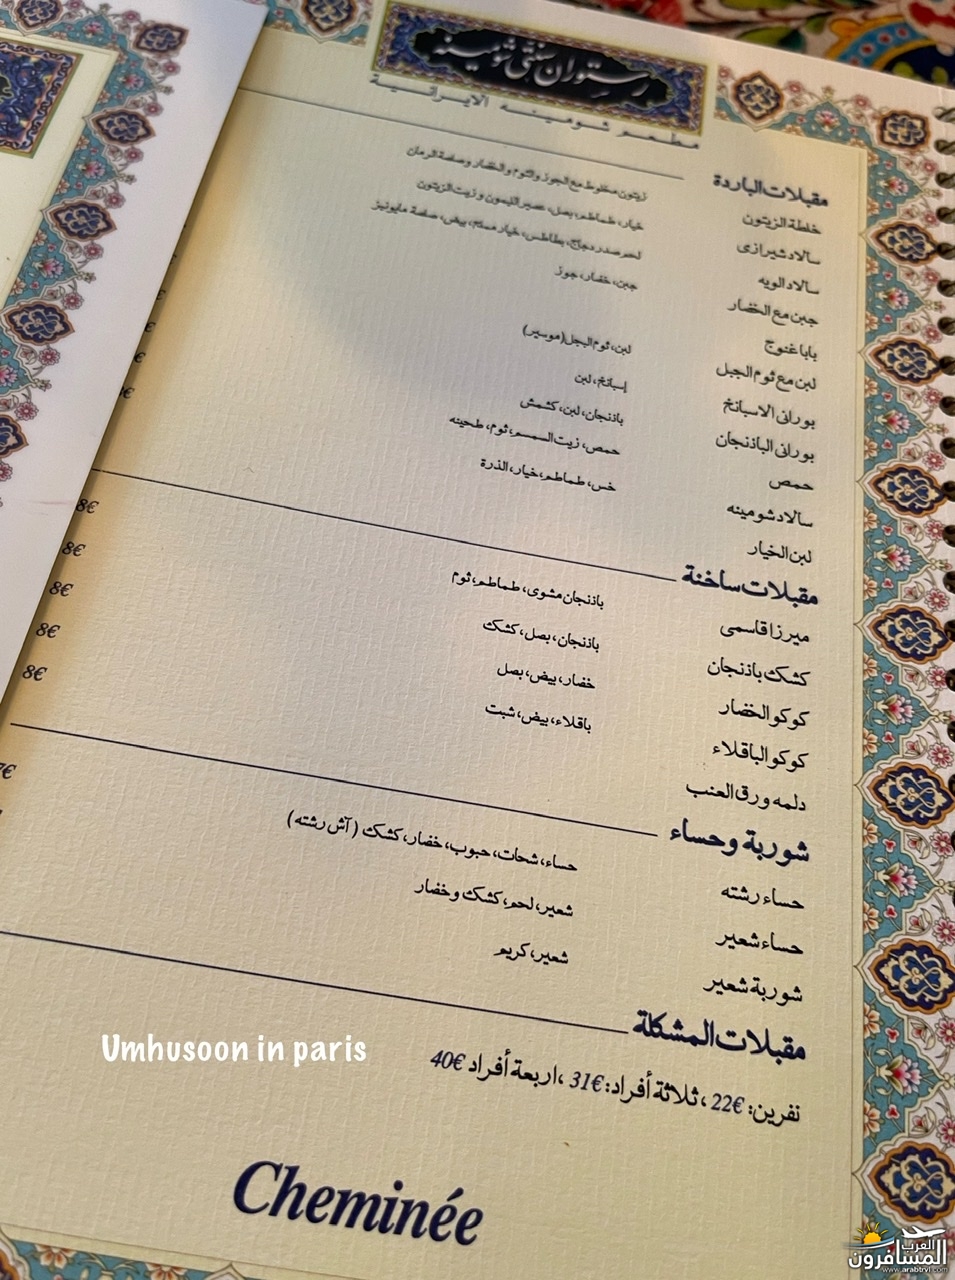 رستوران سنتی شومینه
مطعم شومینه الایرانیة
مقبلات الباردة
خلطة الزیتون زیتون مخلوط مع الجوز والثوم والخضار وصلصة الرمان
سالاد شیرازی خیار، طماطم، بصل، عصیر اللیمون و زیت الزیتون
سالاد الویه لحم صدر دجاج، بطاطس، خیار مملح، بیض، صلصة مایونیز
جبن مع الخضار جبن، خضار، جوز
بابا غنوج
لبن مع ثوم الجبل لبن، ثوم الجبل (موسیر)
بورانی الاسبانخ إسبانخ، لبن
بورانی الباذنجان باذنجان، لبن، کشمش
حمص حمص، زیت السمسم، ثوم، طحینه
سالاد شومینه خس، طماطم، خیار، الذرة
لبن الخیار
مقبلات ساخنة
میرزا قاسمی باذنجان مشوی، طماطم، ثوم 8€
کشک باذنجان باذنجان، بصل، کشک 8€
کوکو الخضار خضار، بیض، بصل 8€
کوکو الباقلاء باقلاء، بیض، شبت 8€
دلمه ورق العنب 8€
شوربة وحساء
حساء رشته حساء، شحات، حبوب، خضار، کشک (آش رشته) 7€
حساء شعیر شعیر، لحم، کشک وخضار
شوربة شعیر شعیر، کریم
مقبلات المشکلة
نفرین: 22€، ثلاثة أفراد: 31€، اربعة أفراد 40€
Umhusoon in paris
Cheminée
العرب
المسافرون
www.arabtrvl.com